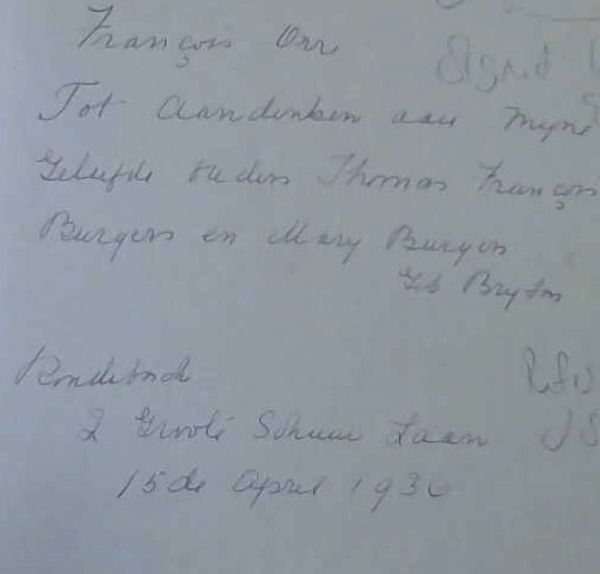 François Orr
Tot Aandenken aan Myne
Geliefde Ouders Thomas François
Burgers en Mary Burgers
Geb Bryton
Rondebosch
2 Groote Schuur Laan
15de April 1936